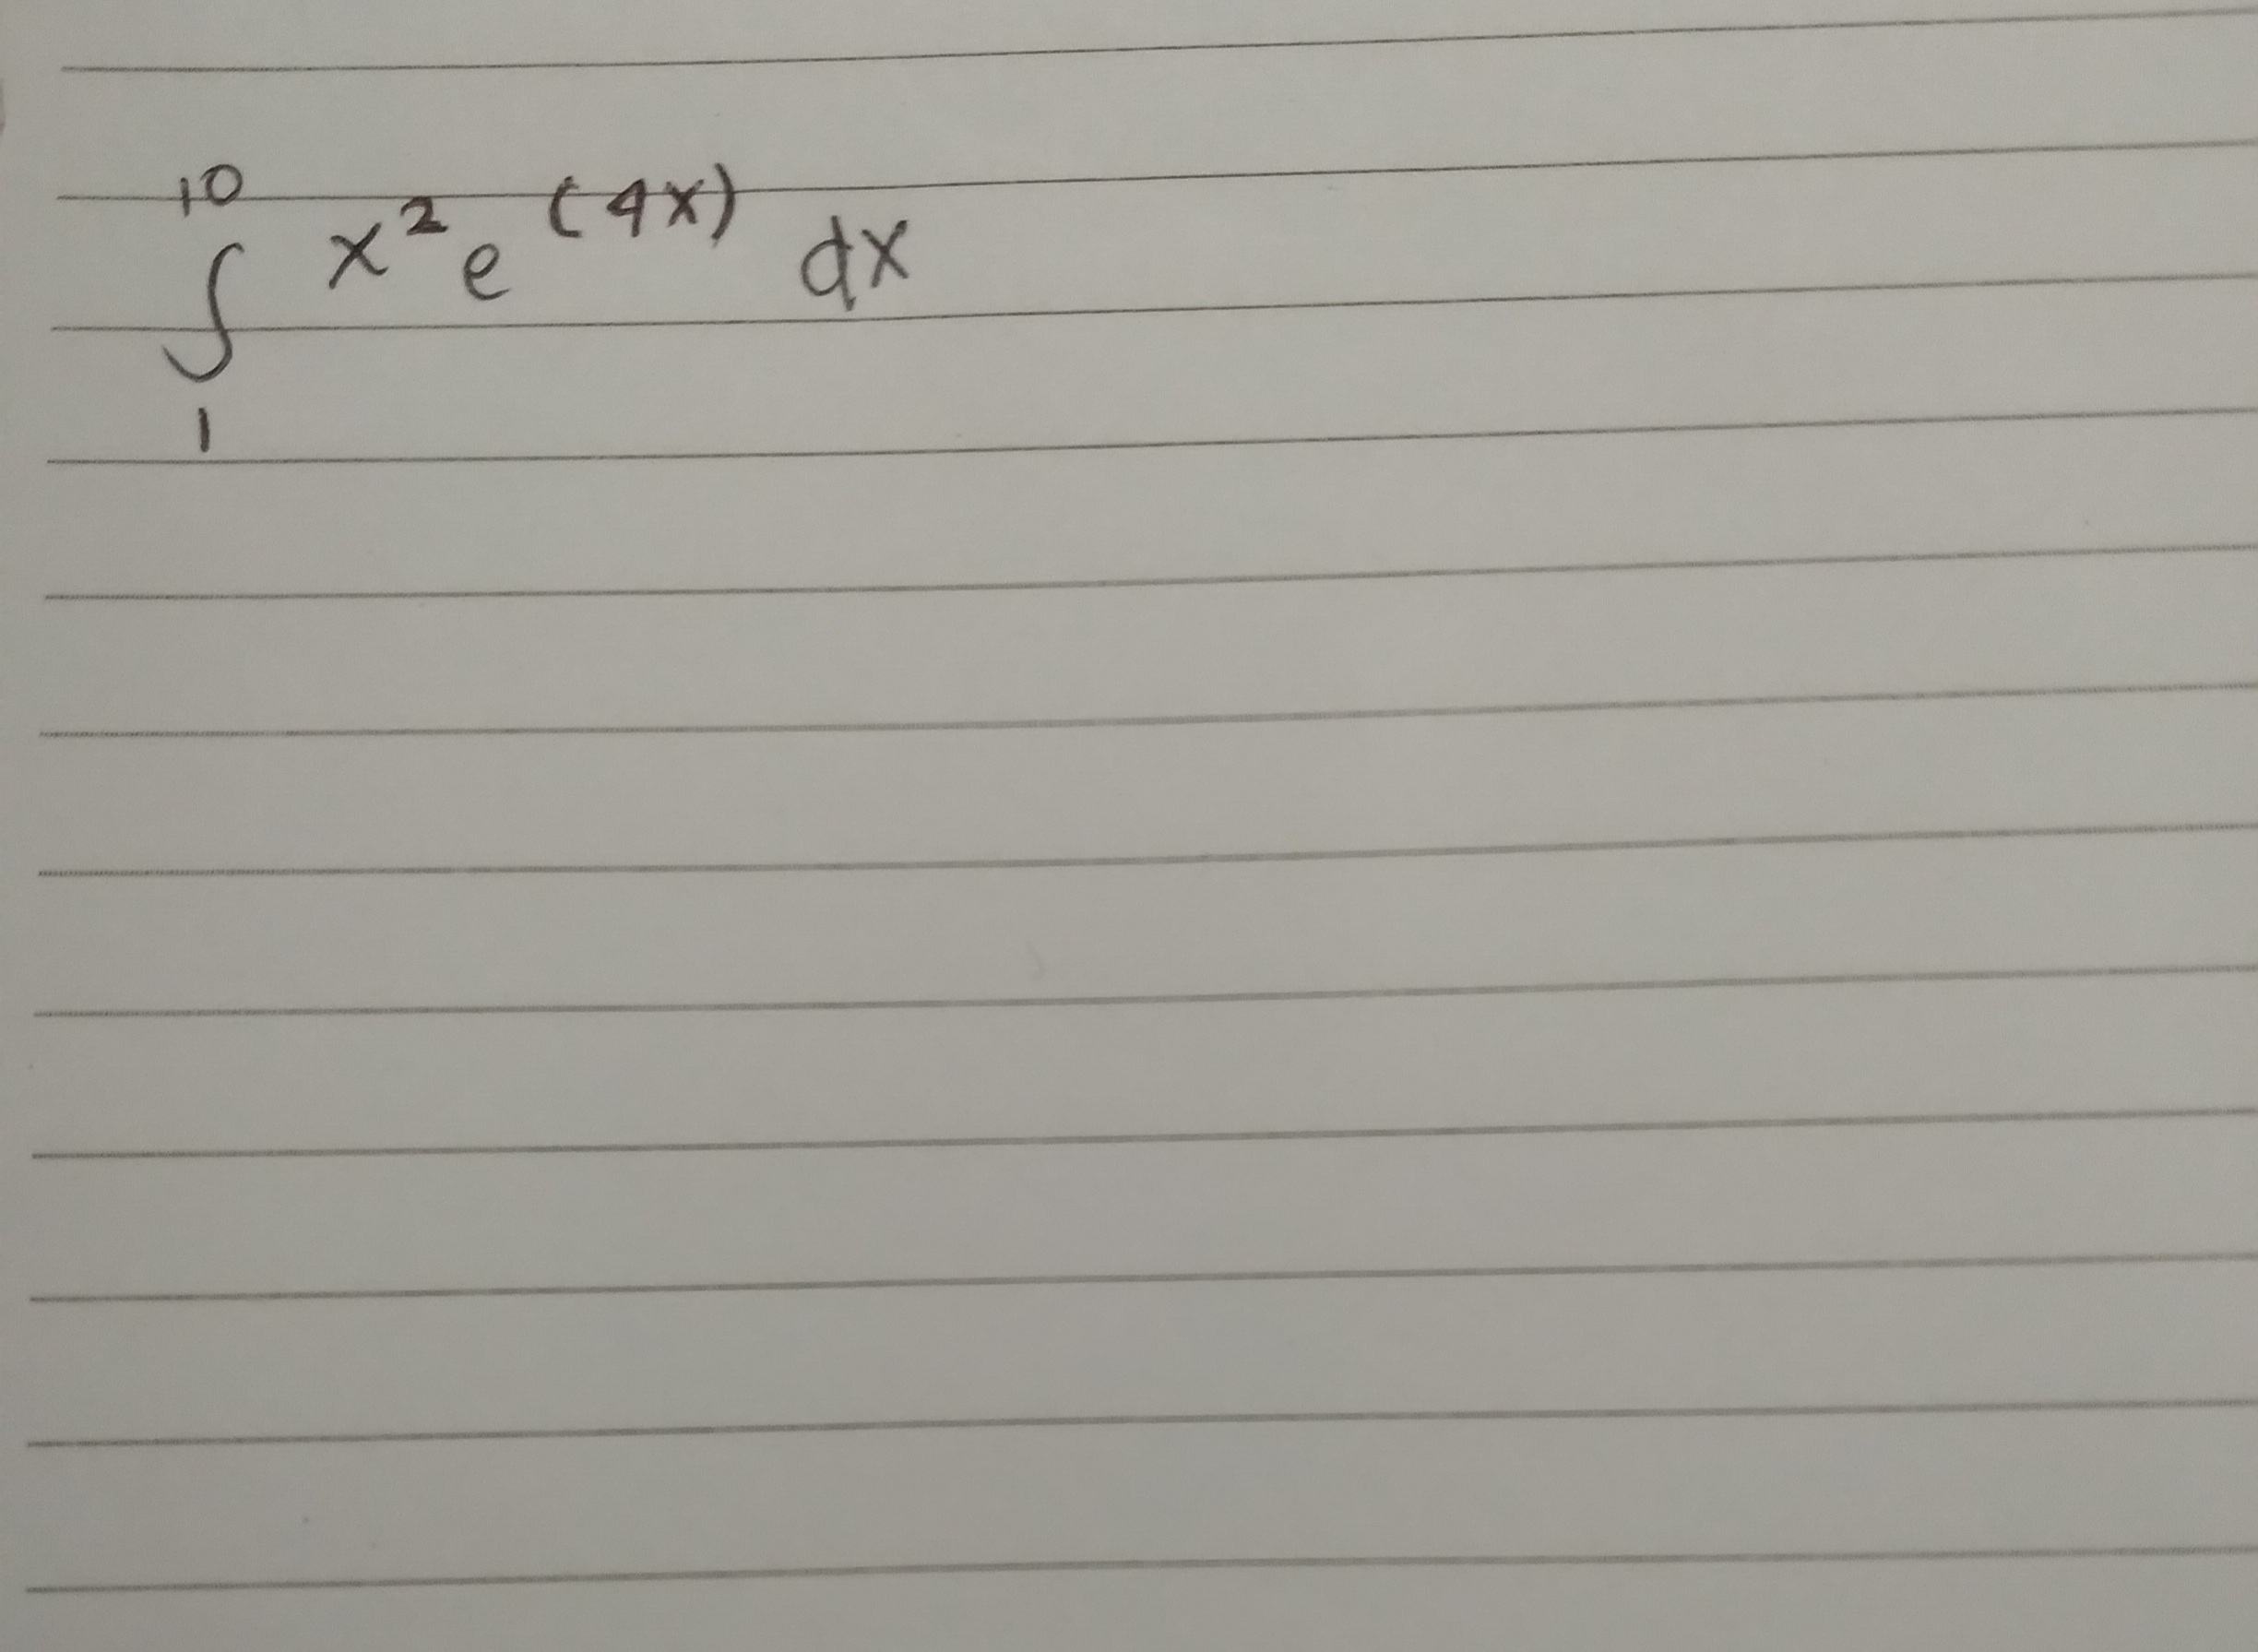 ∫₁¹⁰ x² e^(4x) dx